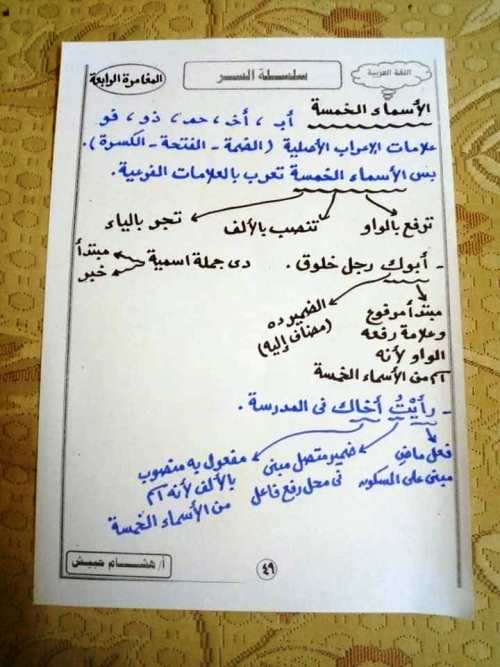 اللغة العربية
سلسلة السر
المغامرة الرابعة
الأسماء الخمسة أب، أخ، حم، ذو، فو
علامات الإعراب الأصلية (الضمة - الفتحة - الكسرة).
بس الأسماء الخمسة تعرب بالعلامات الفرعية.
ترفع بالواو تنصب بالألف تجر بالياء
- أبوك رجل خلوق. دى جملة اسمية مبتدأ
خبر
مبتدأ مرفوع
وعلامة رفعه
الواو لأنه
اسم من الأسماء الخمسة
الضمير ده
(مضاف إليه)
- رأيْتُ أخاك فى المدرسة.
فعل ماضٍ
مبنى على السكون
ضمير متصل مبنى
فى محل رفع فاعل
مفعول به منصوب
بالألف لأنه اسم
من الأسماء الخمسة
٤٩
أ/ هشام حبيش